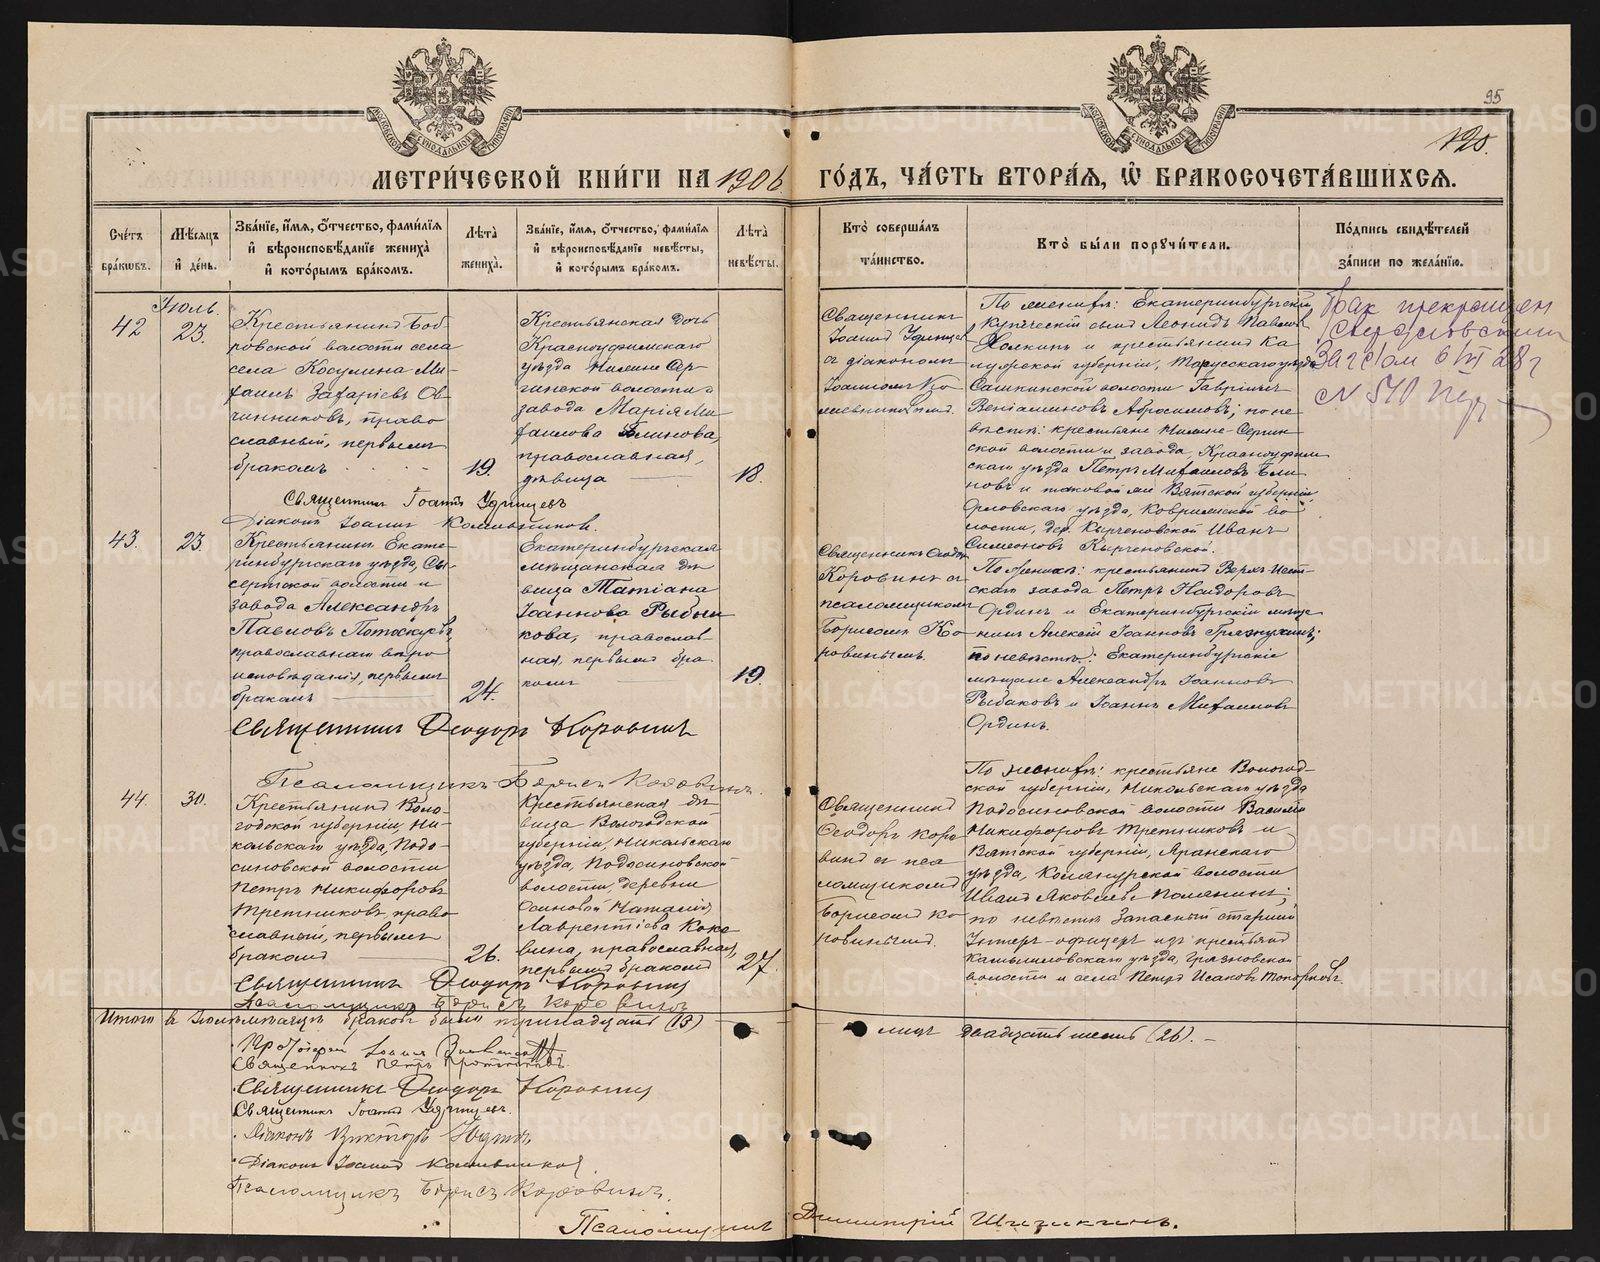 95
120.
МЕТРИ́ЧЕСКОЙ КНИ́ГИ НА 1906 ГО́ДЪ, ЧА́СТЬ ВТОРА́Я, Ѡ҆ БРАКОСОЧЕТА́ВШИХСЯ.
Сче́тъ бра́кѡвъ.
Мѣ́сяцъ и҆ де́нь.
Зва́нїе, и҆́мя, ѻ҆́тчество, фами́лїя и҆ вѣроисповѣ́данїе жениха̀ и҆ кото́рымъ бра́комъ.
Лѣ́та жениха̀.
Зва́нїе, и҆́мя, ѻ҆́тчество, фами́лїя и҆ вѣроисповѣ́данїе невѣ́сты, и҆ кото́рымъ бра́комъ.
Лѣ́та невѣ́сты.
Кто̀ соверша́лъ та́инство.
Кто̀ бы́ли порꙋчи́тели.
По́дпись свидѣ́телей за́писи по жела́нїю.
Іюль.
42
23.
Крестьянинъ Боб-
ровской волости села
села Косулина Ми-
хаилъ Захаріевъ Ов-
чинниковъ, право
славный, первымъ
бракомъ
19.
Крестьянская дочь
Красноуфимскаго
уѣзда Нижне Сер-
гинской волости и
завода Марія Ми
хаилова Блинова,
православная,
дѣвица
18.
Священникъ
Іоаннъ Удинцев
съ діакономъ
Іоанномъ Ко-
По женихѣ: Екатеринбургскій
купеческій сынъ Леонидъ Павлов
Холкинъ и крестьянинъ Ка
лужской губерніи, Тарусскаго уѣзда
Сашкинской волости Гавріилъ
Веніаминовъ Абросимовъ; по не
вѣстѣ: крестьяне Нижне-Сергин
ской волости и завода, Красноуфим
скаго уѣзда Петръ Михаиловъ Бли
новъ и таковой же Вятской губерніи,
Орловскаго уѣзда, Ковринской во
лости, дер. Кырченовской Иванъ
Симеоновъ Кырченовской.
Брак прекращен
Свердловским
Загсом 6/VI 28 г
N 570
Священникъ Іоаннъ Удинцевъ
Діаконъ Іоаннъ
43.
23.
Крестьянинъ Екате-
ринбургскаго уѣзда, Сы-
сертской волости и
завода Александръ
Павловъ Потоскуевъ,
православнаго вѣро
исповѣданія, первымъ
бракомъ
24.
Екатеринбургская
мѣщанская дѣ
вица Татіана
Іоаннова Рыбни
кова, православ-
ная, первымъ бра
комъ
19.
Священникъ Ѳеодоръ
Коровинъ съ
псаломщикомъ
Борисомъ Ко-
ровинымъ.
По женихѣ: крестьянинъ Верхъ-Исет
скаго завода Петръ Наидоровъ
Ординъ и Екатеринбургскій мѣща
нинъ Алексій Іоанновъ Грязнухинъ;
по невѣстѣ: Екатеринбургскіе
мѣщане Александръ Іоанновъ
Рыбаковъ и Іоаннъ Михаиловъ
Ординъ.
Священникъ Ѳеодоръ Коровинъ
Псаломщикъ Борисъ Коровинъ.
44.
30.
Крестьянинъ Воло-
годской губерніи, Ни-
кольскаго уѣзда, Подо-
синовской волости
Петръ Никифоровъ
Третниковъ, право
славный, первымъ
бракомъ
26.
Крестьянская дѣ
вица Вологодской
губерніи, Никольскаго
уѣзда, Подосиновской
волости, деревни
Осиновой Наталія
Лаврентіева Коке
вина, православная,
первымъ бракомъ
27.
Священникъ
Ѳеодоръ Коро
винъ съ пса
ломщикомъ
Борисомъ Ко
ровинымъ.
По женихѣ: крестьяне Вологод-
ской губерніи, Никольскаго уѣзда
Подосиновской волости Василій
Никифоровъ Третниковъ и
Вятской губерніи, Яранскаго
уѣзда, Комаңурской волости
Иванъ Яковлевъ Полянинъ;
по невѣстѣ запасный старшій
Унтеръ-офицеръ изъ крестьянъ
Камышловскаго уѣзда, Грязновской
волости и села Петръ Исаковъ Топорковъ.
Священникъ Ѳеодоръ Коровинъ
Псаломщикъ Борисъ Коровинъ
Итого въ Іюлѣ мѣсяцѣ браковъ было тринадцать (13) лицъ двадцать шесть (26).
Протоіерей Іоаннъ
Священникъ Петръ
Священникъ Ѳеодоръ Коровинъ
Священникъ Іоаннъ Удинцевъ.
Діаконъ Викторъ
Діаконъ Іоаннъ
Псаломщикъ Борисъ Коровинъ.
Псаломщикъ Димитрій Шишкинъ.